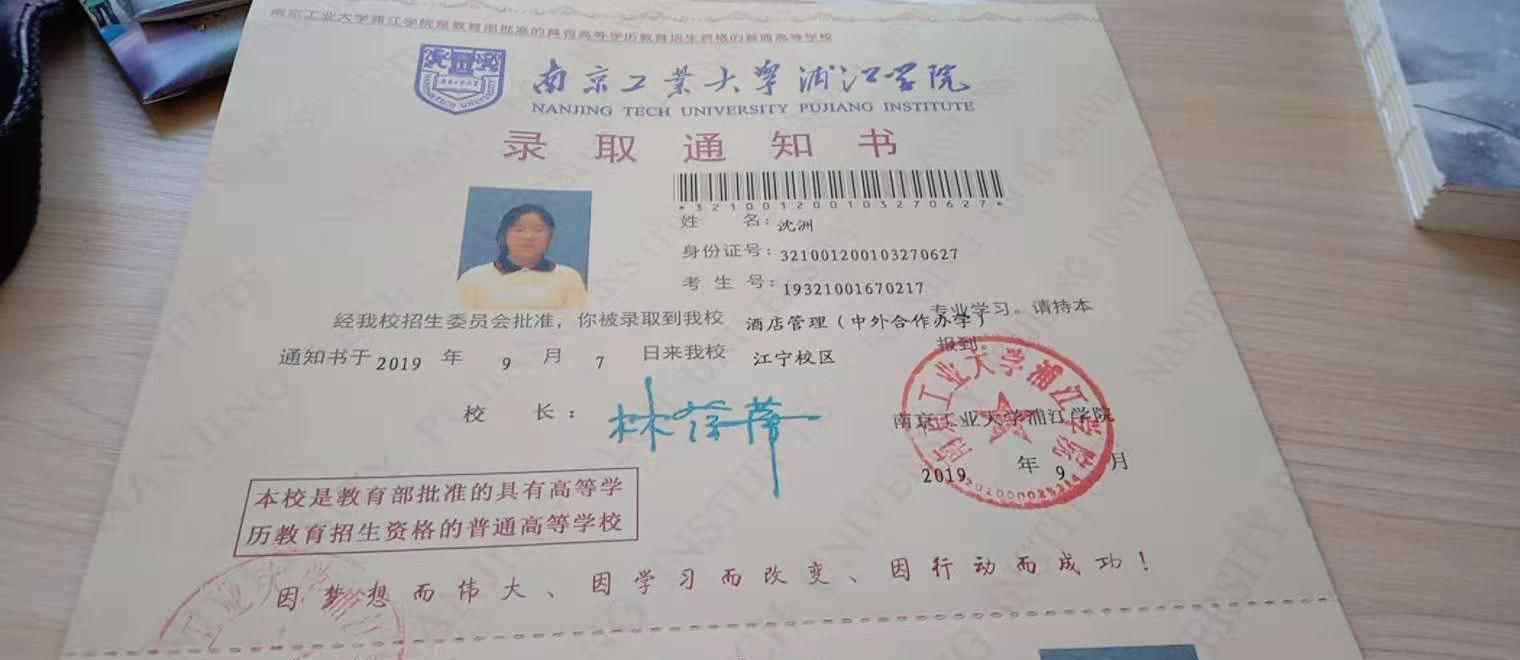 南京工业大学浦江学院是教育部批准的具有高等学历教育招生资格的普通高等学校
南京工业大学浦江学院
NANJING TECH UNIVERSITY PUJIANG INSTITUTE
录取通知书
*321001200103270627*
姓名：沈洲
身份证号：321001200103270627
考生号：19321001670217
经我校招生委员会批准，你被录取到我校 酒店管理（中外合作办学） 专业学习。请持本
通知书于 2019 年 9 月 7 日来我校 江宁校区 报到。
校长：
南京工业大学浦江学院
2019 年 9 月
南京工业大学浦江学院
本校是教育部批准的具有高等学
历教育招生资格的普通高等学校
因梦想而伟大、因学习而改变、因行动而成功！